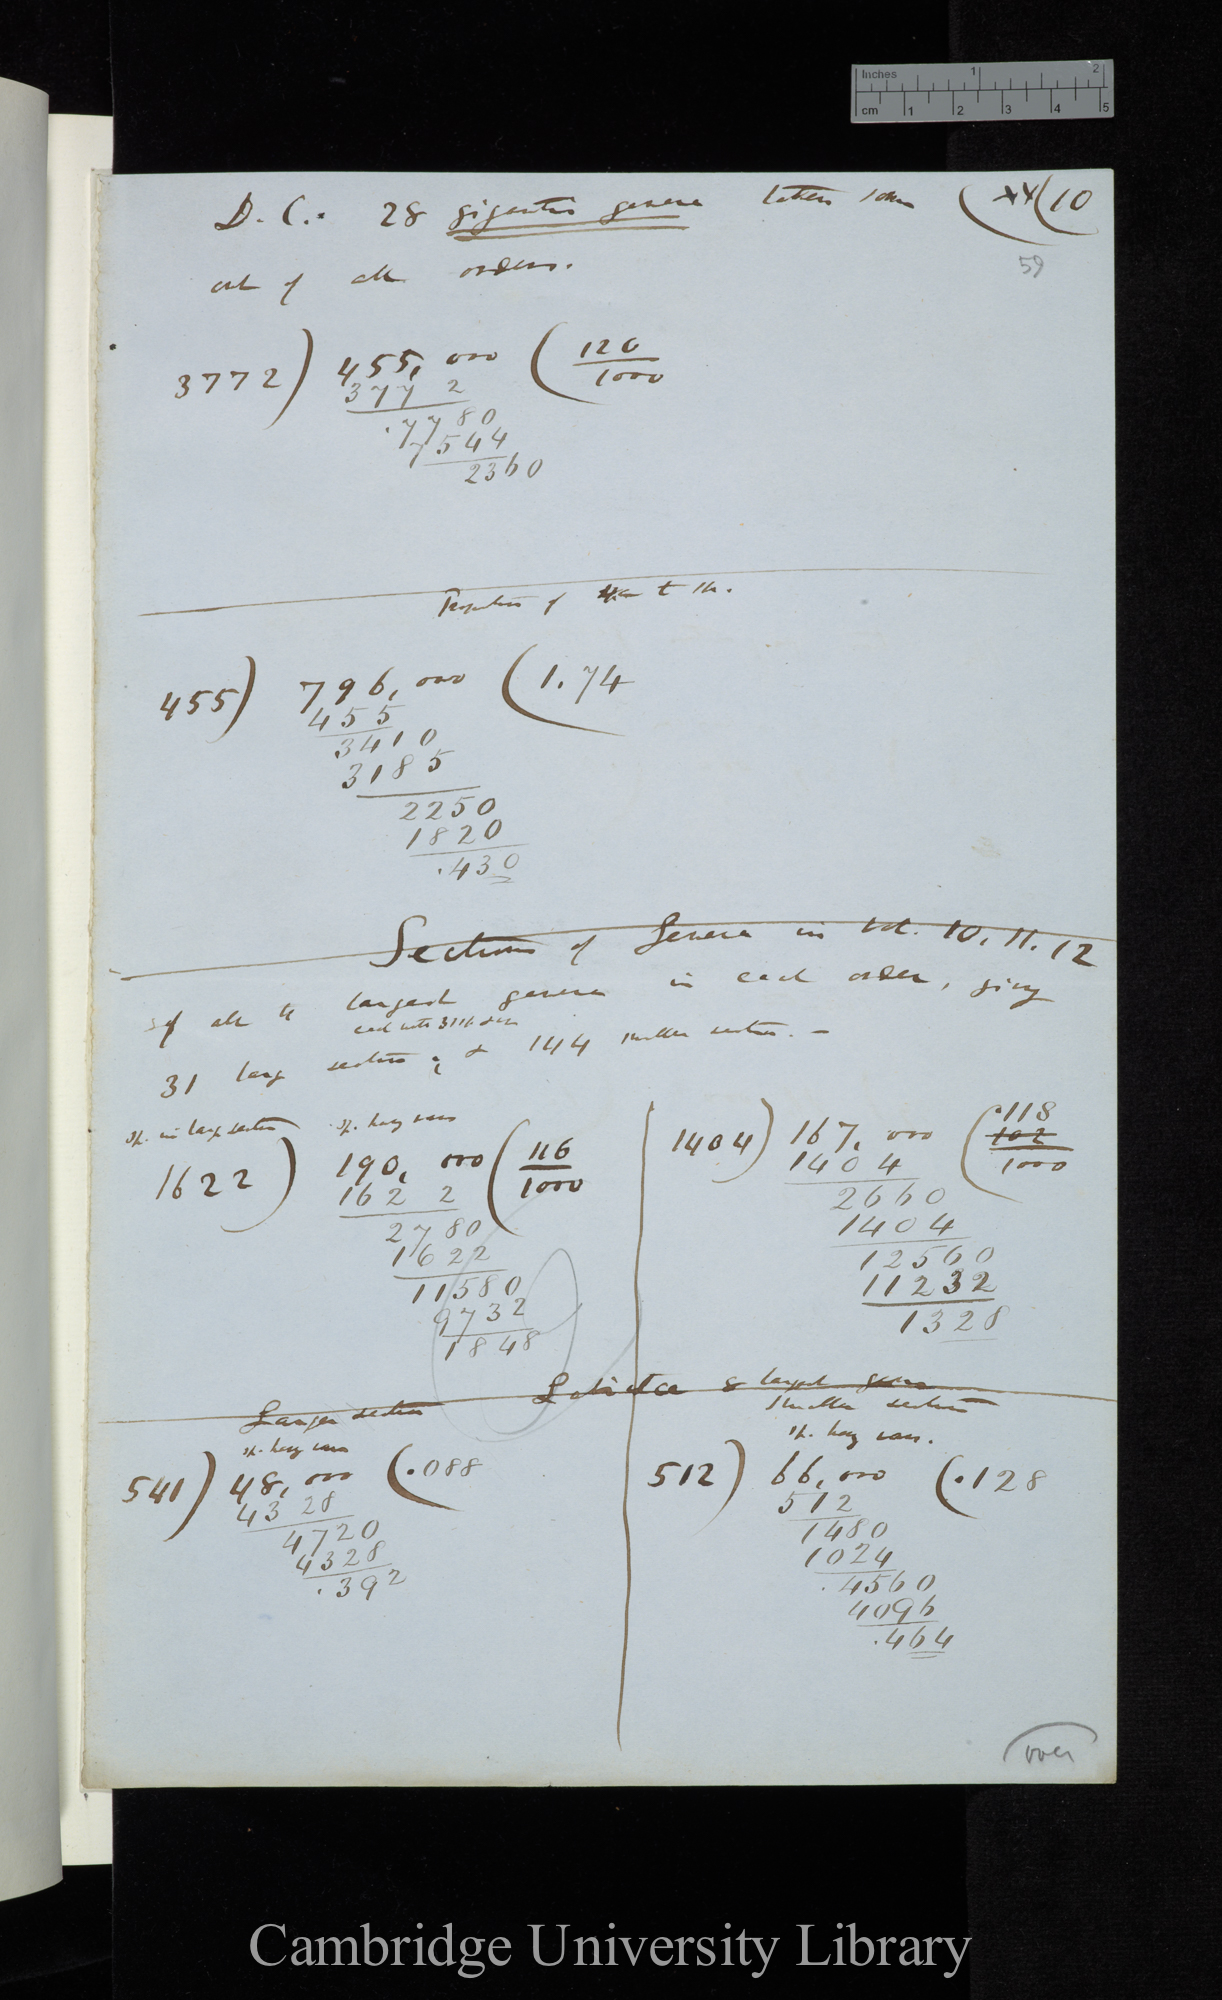 Inches 1 2
cm 1 2 3 4 5
D. C.: 28 gigantic genera taken from (XX(10
out of all orders.
59
3772) 455,000 (120/1000
377 2
.7780
7544
2360
Proportion of
455) 796,000 (1.74
455
3410
3185
2250
1820
.430
Sections of Genera in vol. 10, 11. 12
of all the largest genera in each order, giving
31 large sections; & 144 smaller sections. —
sp. in large section sp. having vars
1622) 190,000 (116/1000
162 2
2780
1622
11580
9732
1848
1404) 167,000 (.118
102
1000
1404
2660
1404
12560
11232
1328
Labiatae & largest genera
Larger section
sp. having vars
541) 48,000 (.088
43 28
4720
4328
.392
Smaller section
sp. having vars.
512) 66,000 (.128
512
1480
1024
.4560
4096
.464
over
Cambridge University Library